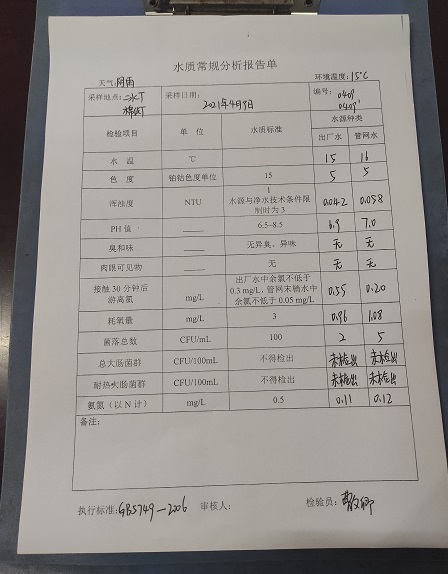 水质常规分析报告单
天气:阴雨 环境温度:15℃
采样地点:二水厂 采样日期: 编号:
2021年4月9日 0409
0409'
检验项目 单 位 水质标准 水源种类
出厂水 管网水
水 温 ℃ 15 16
色 度 铂钴色度单位 15 5 5
浑浊度 NTU 1 0.042 0.058
水源与净水技术条件限
制时为 3
PH 值 6.5~8.5 6.9 7.0
臭和味 无异臭、异味 无 无
肉眼可见物 无 无 无
接触 30 分钟后
游离氯 mg/L 出厂水中余氯不低于 0.55 0.20
0.3 mg/L,管网末梢水中
余氯不低于 0.05 mg/L
耗氧量 mg/L 3 0.96 1.08
菌落总数 CFU/mL 100 2 5
总大肠菌群 CFU/100mL 不得检出 未检出 未检出
耐热大肠菌群 CFU/100mL 不得检出 未检出 未检出
氨氮(以 N 计) mg/L 0.5 0.11 0.12
备注:
执行标准:GB5749-2006 审核人: 检验员: